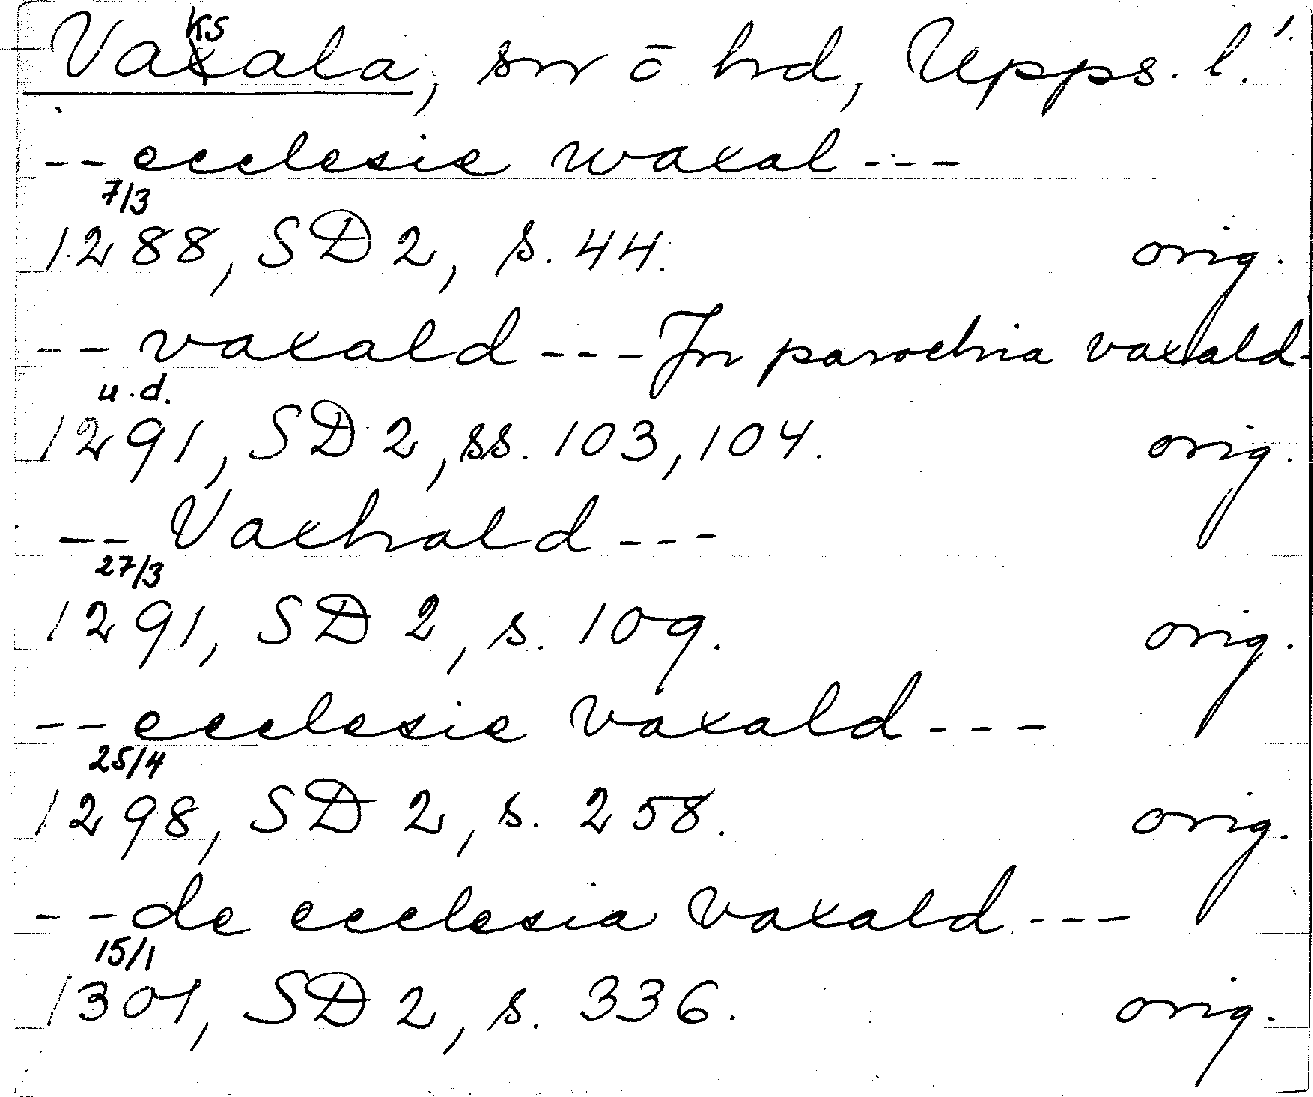 Vaxala, sn o hd, Upps. l.
ks
-- ecclesie waxal ---
7/3
1288, SD 2, s. 44. orig.
-- vaxald --- In parochia vaxald-
u.d.
1291, SD 2, ss. 103, 104. orig.
-- Vaxhald ---
27/3
1291, SD 2, s. 109. orig.
-- ecclesie vaxald ---
25/4
1298, SD 2, s. 258. orig.
-- de ecclesia vaxald ---
15/1
1301, SD 2, s. 336. orig.